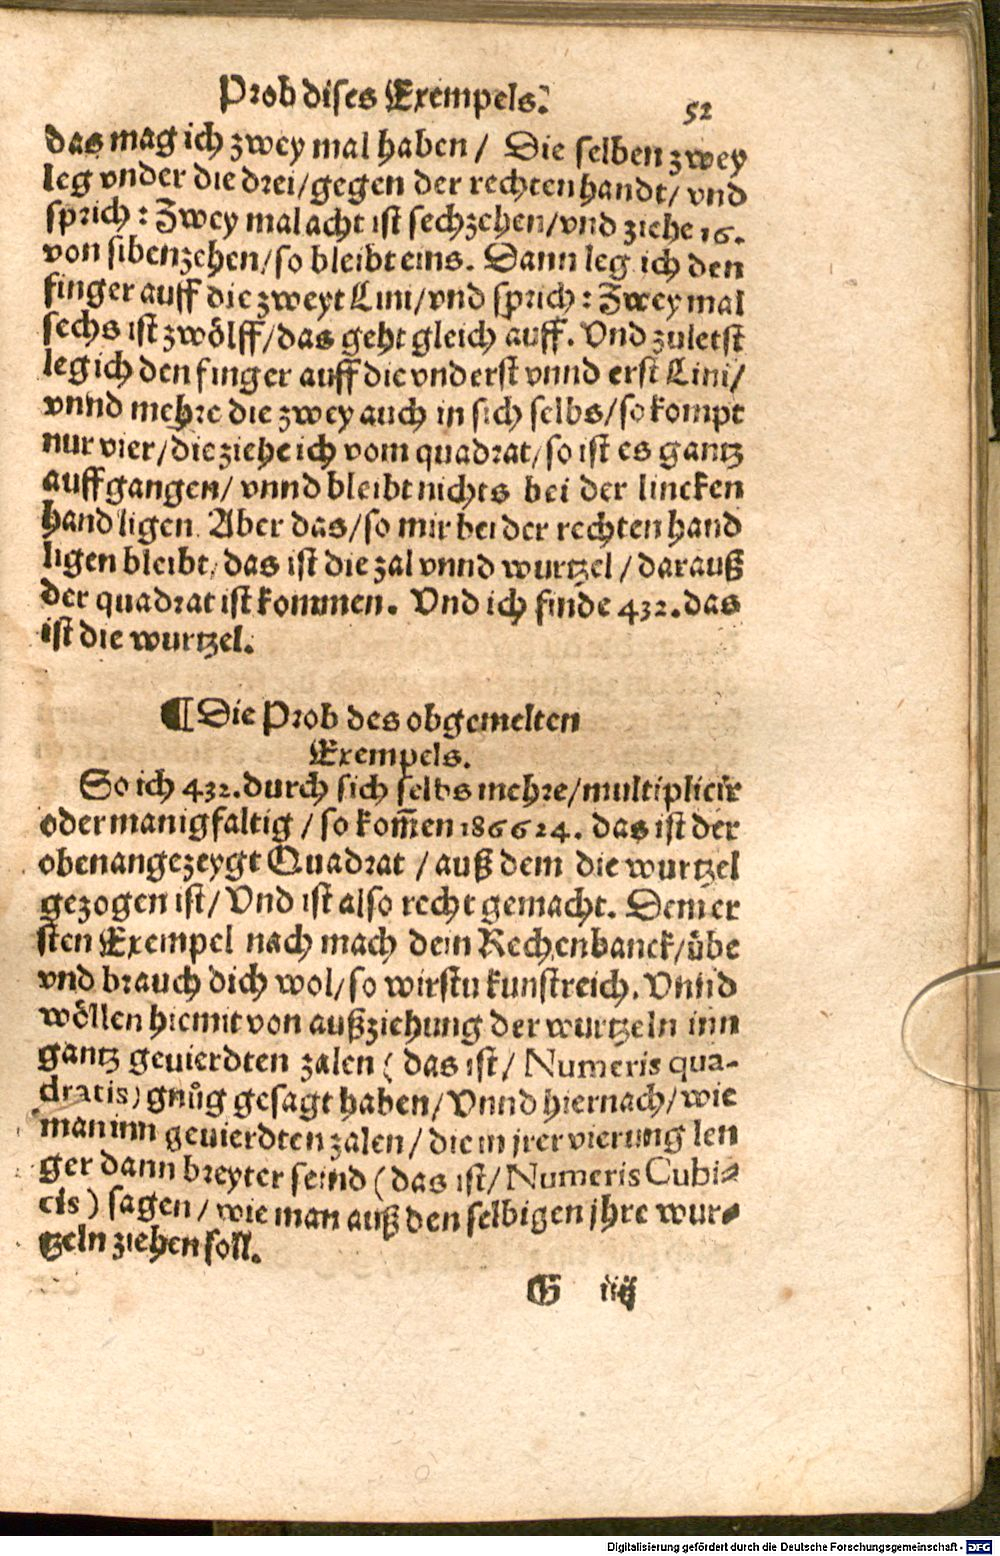 Prob dises Exempels. 52
das mag ich zwey mal haben / Die selben zwey
leg vnder die drei/gegen der rechten handt/ vnd
sprich : Zwey mal acht ist sechzehen/vnd ziehe 16.
von sibenzehen/so bleibt eins. Dann leg ich den
finger auff die zweyt Lini/vnd sprich : Zwey mal
sechs ist zwölff/das geht gleich auff. Vnd zuletst
leg ich den finger auff die vnderst vnnd erst Lini/
vnnd mehre die zwey auch in sich selbs/so kompt
nur vier/die ziehe ich vom quadrat/so ist es gantz
auffgangen/ vnnd bleibt nichts bei der lincken
hand ligen. Aber das/so mir bei der rechten hand
ligen bleibt/ das ist die zal vnnd wurtzel / darauß
der quadrat ist kommen. Vnd ich finde 432.das
ist die wurtzel.
¶Die Prob des obgemelten
Exempels.
So ich 432.durch sich selbs mehre/multiplicir
oder manigfaltig / so kom̅en 186624. das ist der
obenangezeygt Quadrat / auß dem die wurtzel
gezogen ist/ Vnd ist also recht gemacht. Dem er
sten Exempel nach mach dein Rechenbanck/übe
vnd brauch dich wol/so wirstu kunstreich. Vnnd
wöllen hiemit von außziehung der wurtzeln inn
gantz geuierdten zalen ( das ist/ Numeris qua-
dratis) gnůg gesagt haben/ Vnnd hiernach/wie
man inn geuierdten zalen/ die in jrer vierung len
ger dann breyter seind ( das ist/ Numeris Cubi-
cis ) sagen / wie man auß den selbigen jhre wur-
tzeln ziehen soll.
G iiij
Digitalisierung gefördert durch die Deutsche Forschungsgemeinschaft - DFG